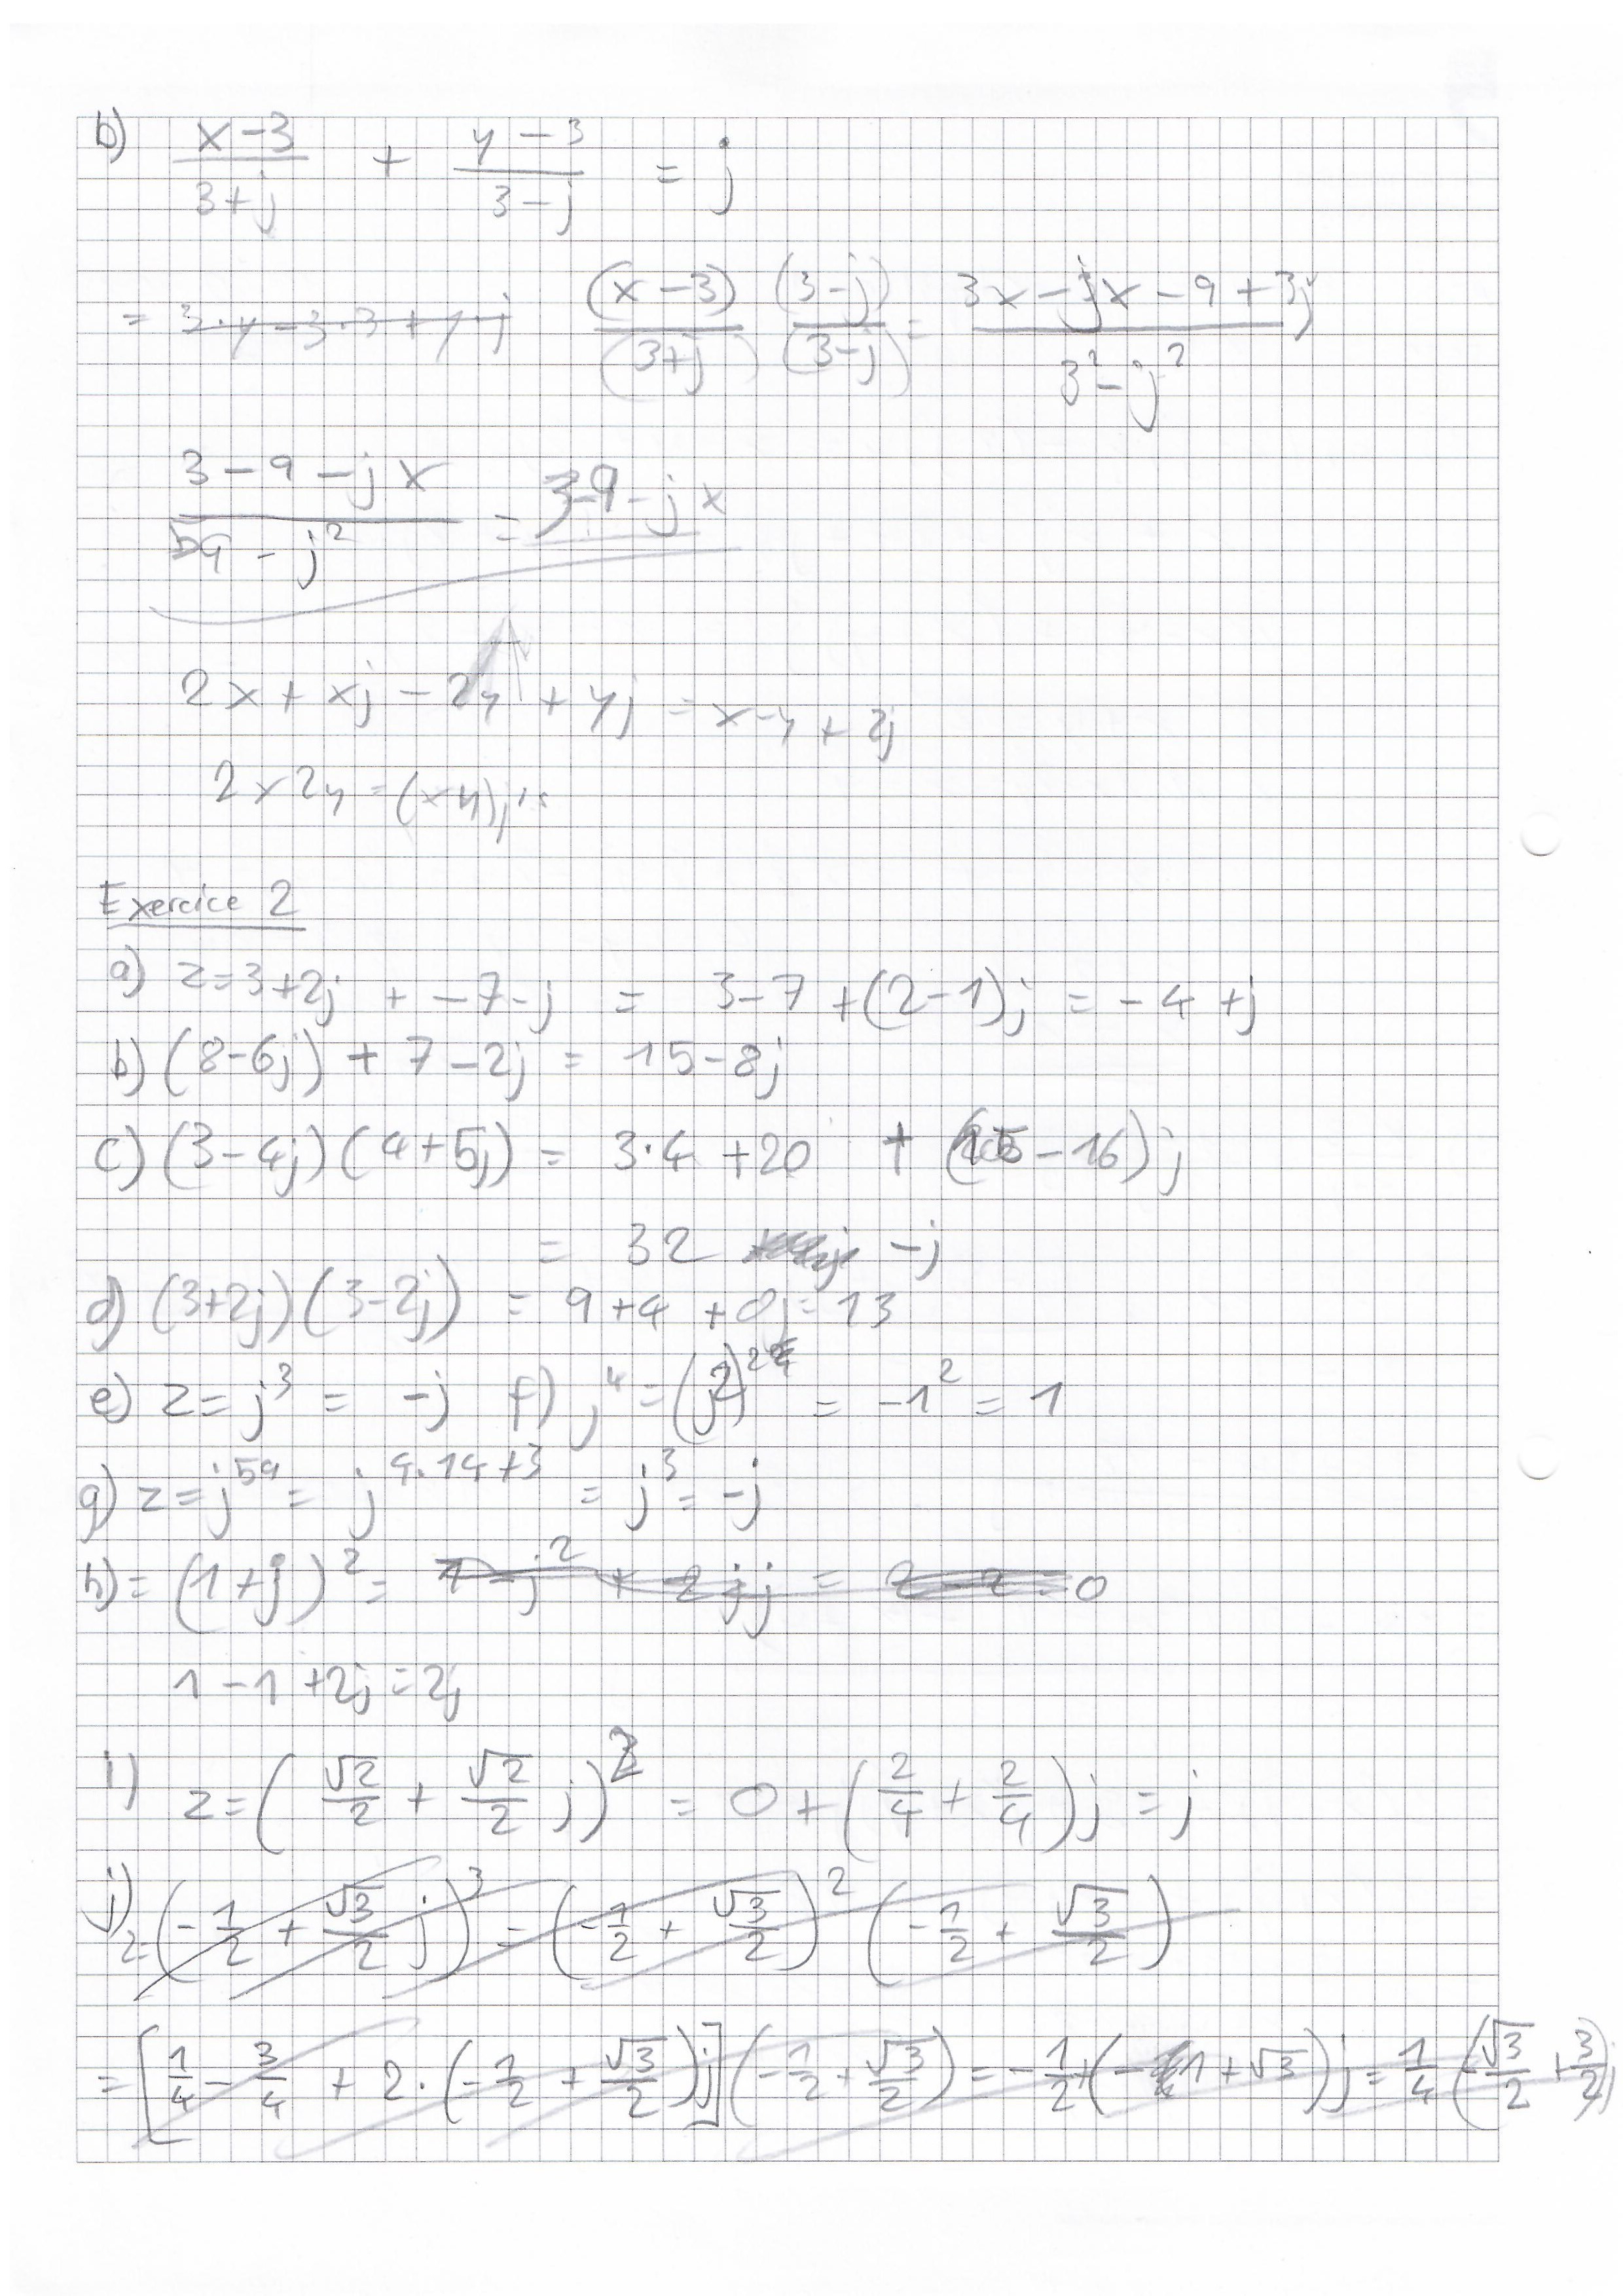 b) (x-3)/(3+j) + (y-3)/(3-j) = j
= 3·y-3·3+y·j (x-3)/(3+j) (3-j)/(3-j) = (3x-jx-9+3j)/(3²-j²)
(3-9-jx)/(9-j²) = 3-9-jx
2x+xj-2y+yj = x-y+2j
2x2y=(xy)j
Exercice 2
a) z=3+2j + -7-j = 3-7+(2-1)j = -4+j
b) (8-6j)+7-2j = 15-8j
c) (3-4j)(4+5j) = 3·4+20 + (15-16)j
= 32 -j
d) (3+2j)(3-2j) = 9+4+0j=13
e) z=j³ = -j f) j⁴=(j²)² = -1² = 1
g) z=j⁵⁹= j^(4·14+3) = j³ = -j
h) = (1+j)² = 1-j²+2jj = 2-2=0
1-1+2j=2j
i) z=(√2/2 + √2/2 j)² = 0+(2/4+2/4)j = j
j) z=(-1/2 + √3/2 j)³ = (-1/2 + √3/2)² (-1/2 + √3/2)
= [1/4-3/4 + 2·(-1/2 + √3/2)j](-1/2+√3/2) = -1/2+(-1+√3)j = 1/4 (√3/2+3/2)j